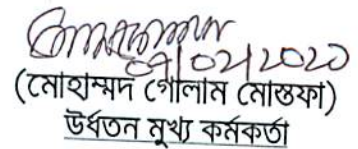 09/02/2020
(মোহাম্মদ গোলাম মোস্তফা)
উর্ধতন মুখ্য কর্মকর্তা